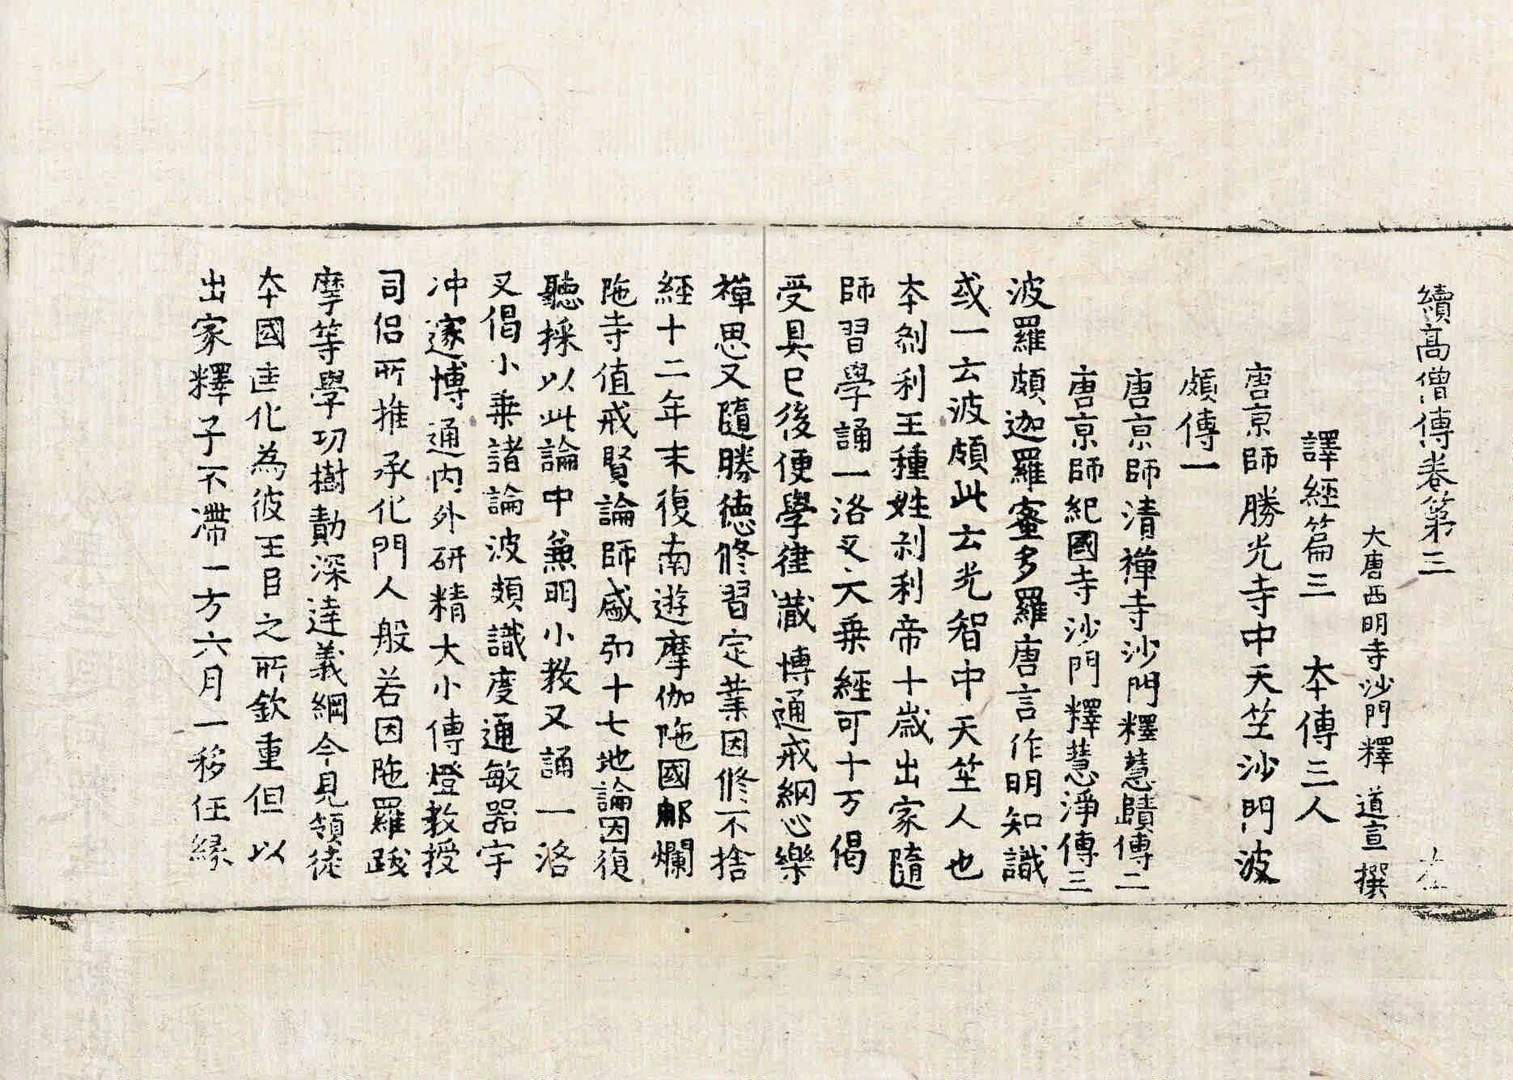 續高僧傳卷第三 左
大唐西明寺沙門釋 道宣 撰
譯經篇三 本傳三人
唐京師勝光寺中天竺沙門波
頗傳一
唐京師清禪寺沙門釋慧賾傳二
唐京師紀國寺沙門釋慧淨傳三
波羅頗迦羅蜜多羅唐言作明知識
或一云波頗此云光智中天竺人也
本剎利王種姓剎利帝十歲出家隨
師習學誦一洛叉大乘經可十万偈
受具已後便學律藏博通戒網心樂
禪思又隨勝德修習定業因修不捨
經十二年末復南遊摩伽陁國那爛
陁寺值戒賢論師盛弘十七地論因復
聽採以此論中兼明小教又誦一洛
叉偈小乘諸論波頗識度通敏器宇
冲邃博通內外研精大小傳燈教授
同侶所推承化門人般若因陁羅跋
摩等學功樹勣深達義綱今見領徒
本國匡化為彼王臣之所欽重但以
出家釋子不滯一方六月一移任緣